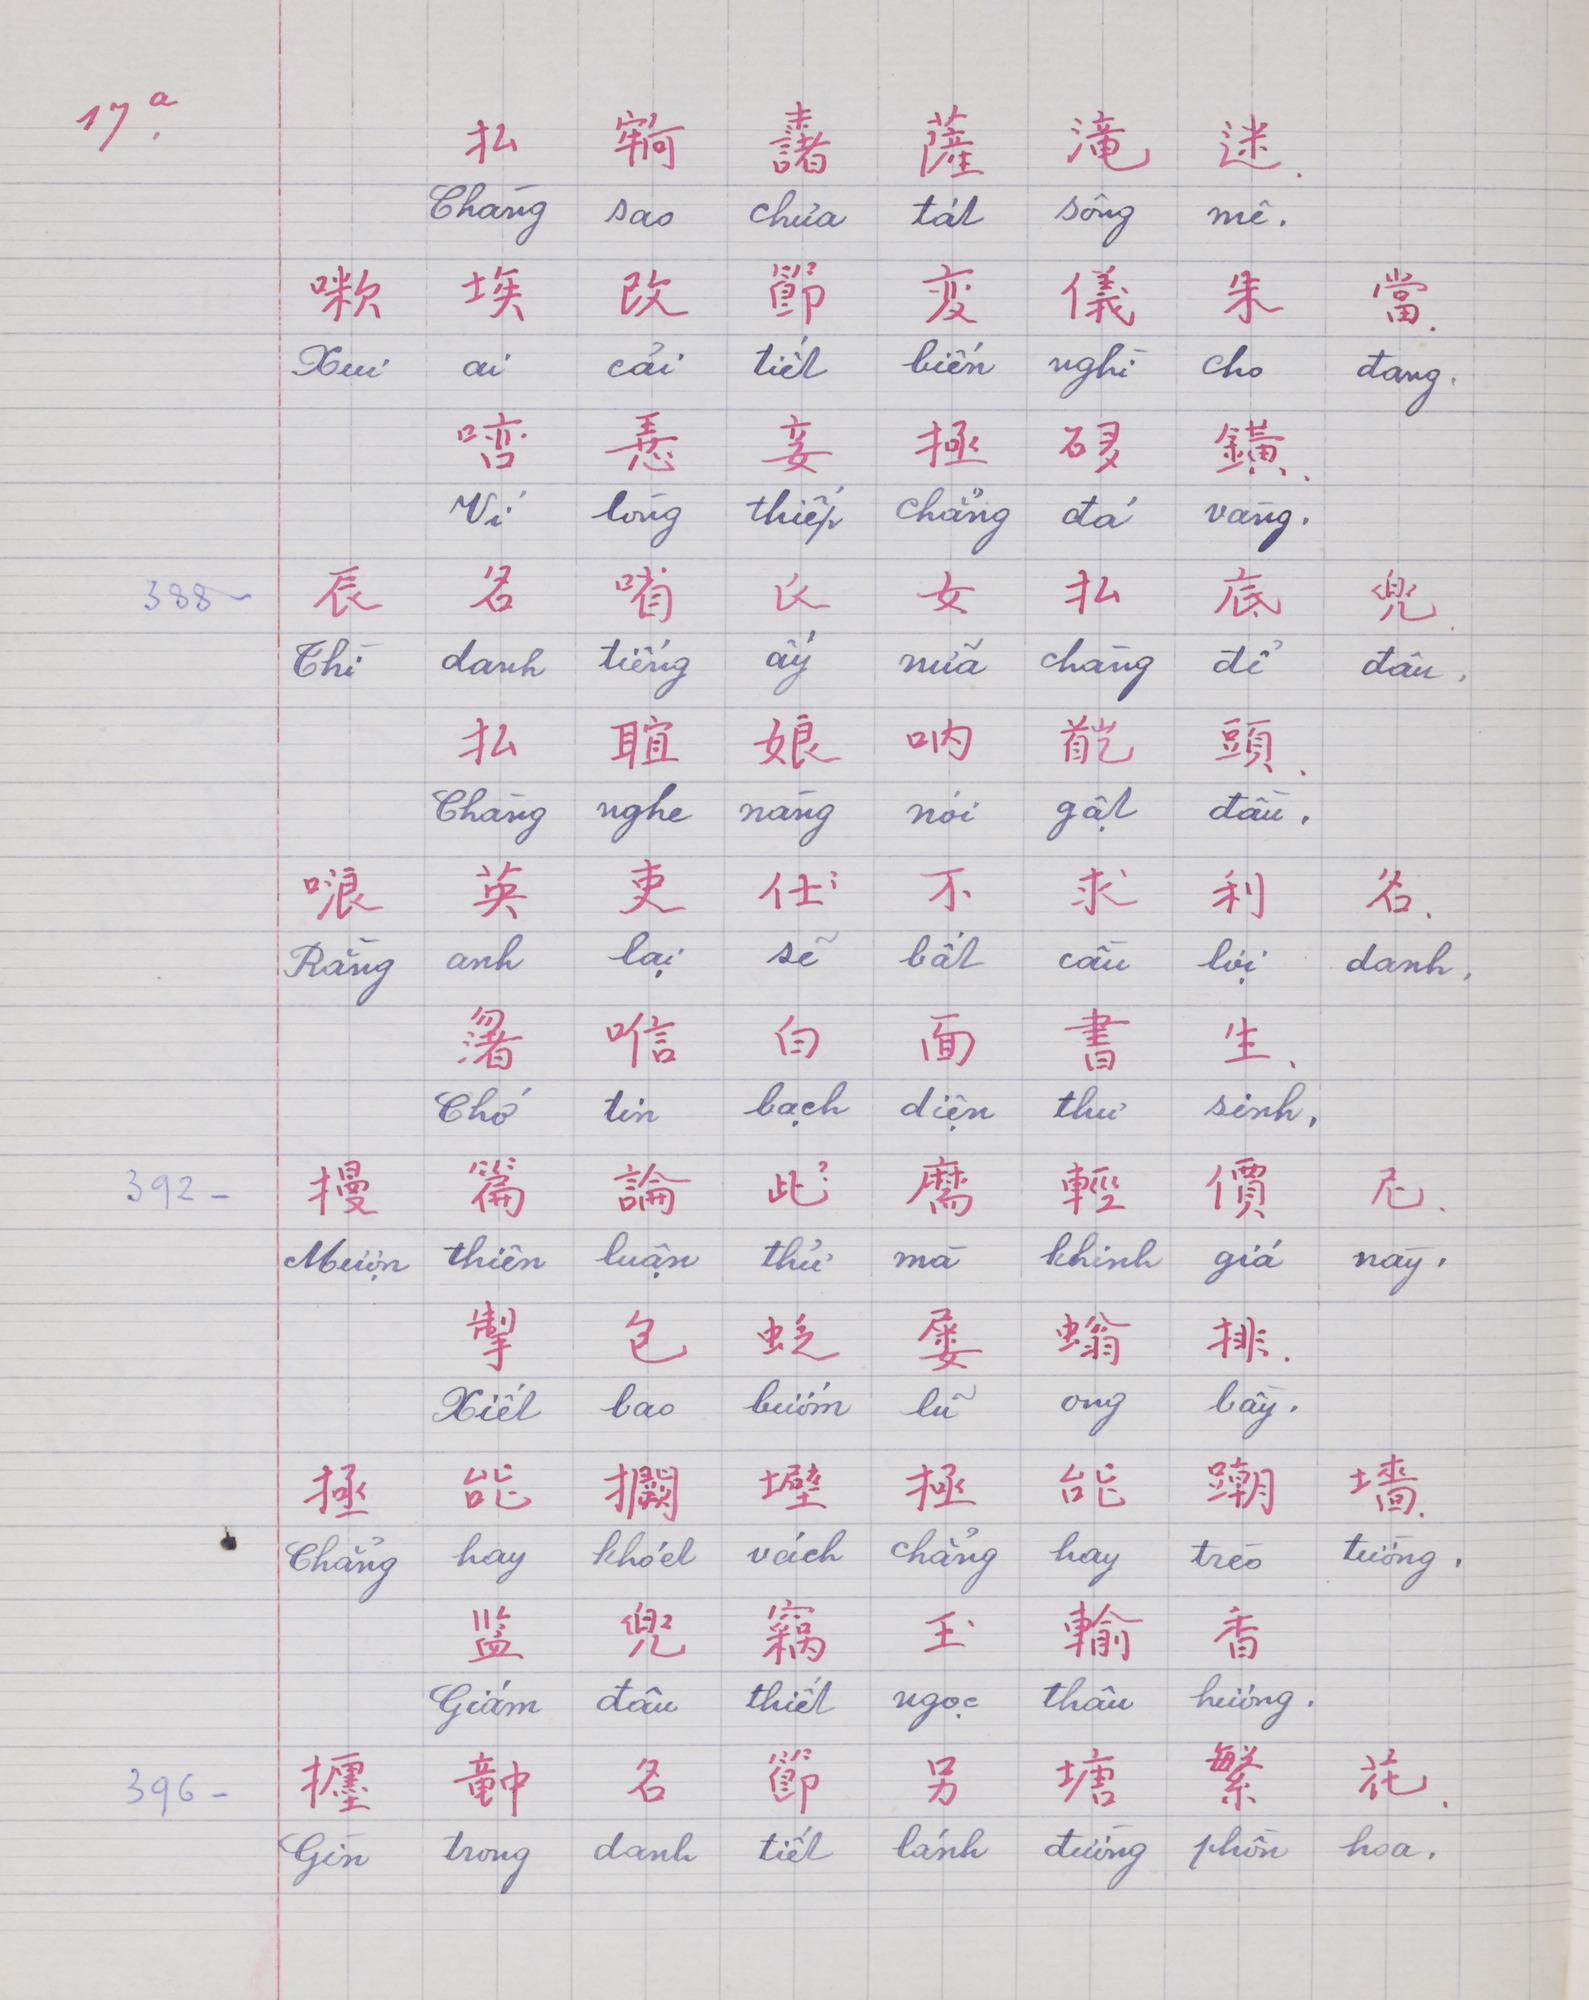 17a.
払 𡨧 𣗓 薩 滝 迷.
Chàng sao chửa tát sông mê.
㗜 埃 改 節 变 儀 朱 當.
Xui ai cải tiết biến nghì cho đang.
㖇 𢚸 妾 極 𥒥 鐄.
Ví lòng thiếp chẳng đá vàng.
388- 辰 名 㗂 氏 女 払 底 兜.
Thì danh tiếng ấy nữa chàng để đâu.
払 𦖑 娘 吶 䭲 頭.
Chàng nghe nàng nói gật đầu.
哴 英 吏 仕 不 求 利 名.
Rằng anh lại sẽ bất cầu lợi danh.
渚 信 白 面 書 生.
Chớ tin bạch diện thư sinh.
392- 摱 篇 論 此 麻 輕 價 尼.
Mượn thiên luận thử mà khinh giá này.
掣 包 𧊉 屡 螉 排.
Xiết bao bướm lũ ong bầy.
極 能 𢹥 壁 極 能 𨄓 墻.
Chẳng hay khoét vách chẳng hay trèo tường.
监 兜 竊 玉 輸 香
Giám đâu thiết ngọc thâu hương.
396- 㨿 𥪝 名 節 另 塘 繁 花.
Gìn trong danh tiết lánh đường phồn hoa.